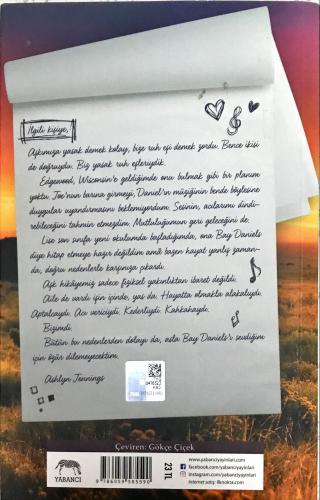 İlgili kişiye,
Aşkımıza yasak demek kolay, bize ruh eşi demek zordu. Bence ikisi
de doğruydu. Biz yasak ruh eşleriydik.
Edgewood, Wisconsin'e geldiğimde onu bulmak gibi bir planım
yoktu. Joe'nun barına girmeyi, Daniel'ın müziğinin bende böylesine
duygular uyandırmasını beklemiyordum. Sesinin, acılarımı dindi-
rebileceğini tahmin etmezdim. Mutluluğumun geri geleceğini de.
Lise son sınıfa yeni okulumda başladığımda, ona Bay Daniels
diye hitap etmeye hazır değildim amâ bazen hayat yanlış zaman-
da, doğru nedenlerle karşınıza çıkardı.
Aşk hikâyemiz sadece fiziksel yakınlıktan ibaret değildi.
Aile de vardı işin içinde, yas da. Hayatta olmakla alakalıydı.
Aptalcaydı. Acı vericiydi. Kederliydi. Kahkahaydı.
Bizimdi.
Bütün bu nedenlerden dolayı da, asla Bay Daniels'ı sevdiğim
için özür dilemeyecektim.
Ashlyn Jennings
Çeviren: Gökçe Çiçek
YABANCI
9 786059 585590
23 TL
www.yabanciyayinlari.com
facebook.com/yabanciyayinlari
/yabanciyayinlari
internet satış: ilknokta.com